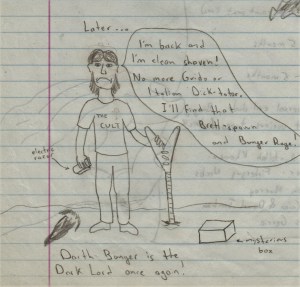 Later...
I'm back and
I'm clean shaven!
No more Guido or
Italian Dicktator.
I'll find that
Brett-spawn
and Bunger Rage.
THE
CULT
electric
razor
mysterious
box
Darth Bunger is the
Dark Lord once again!